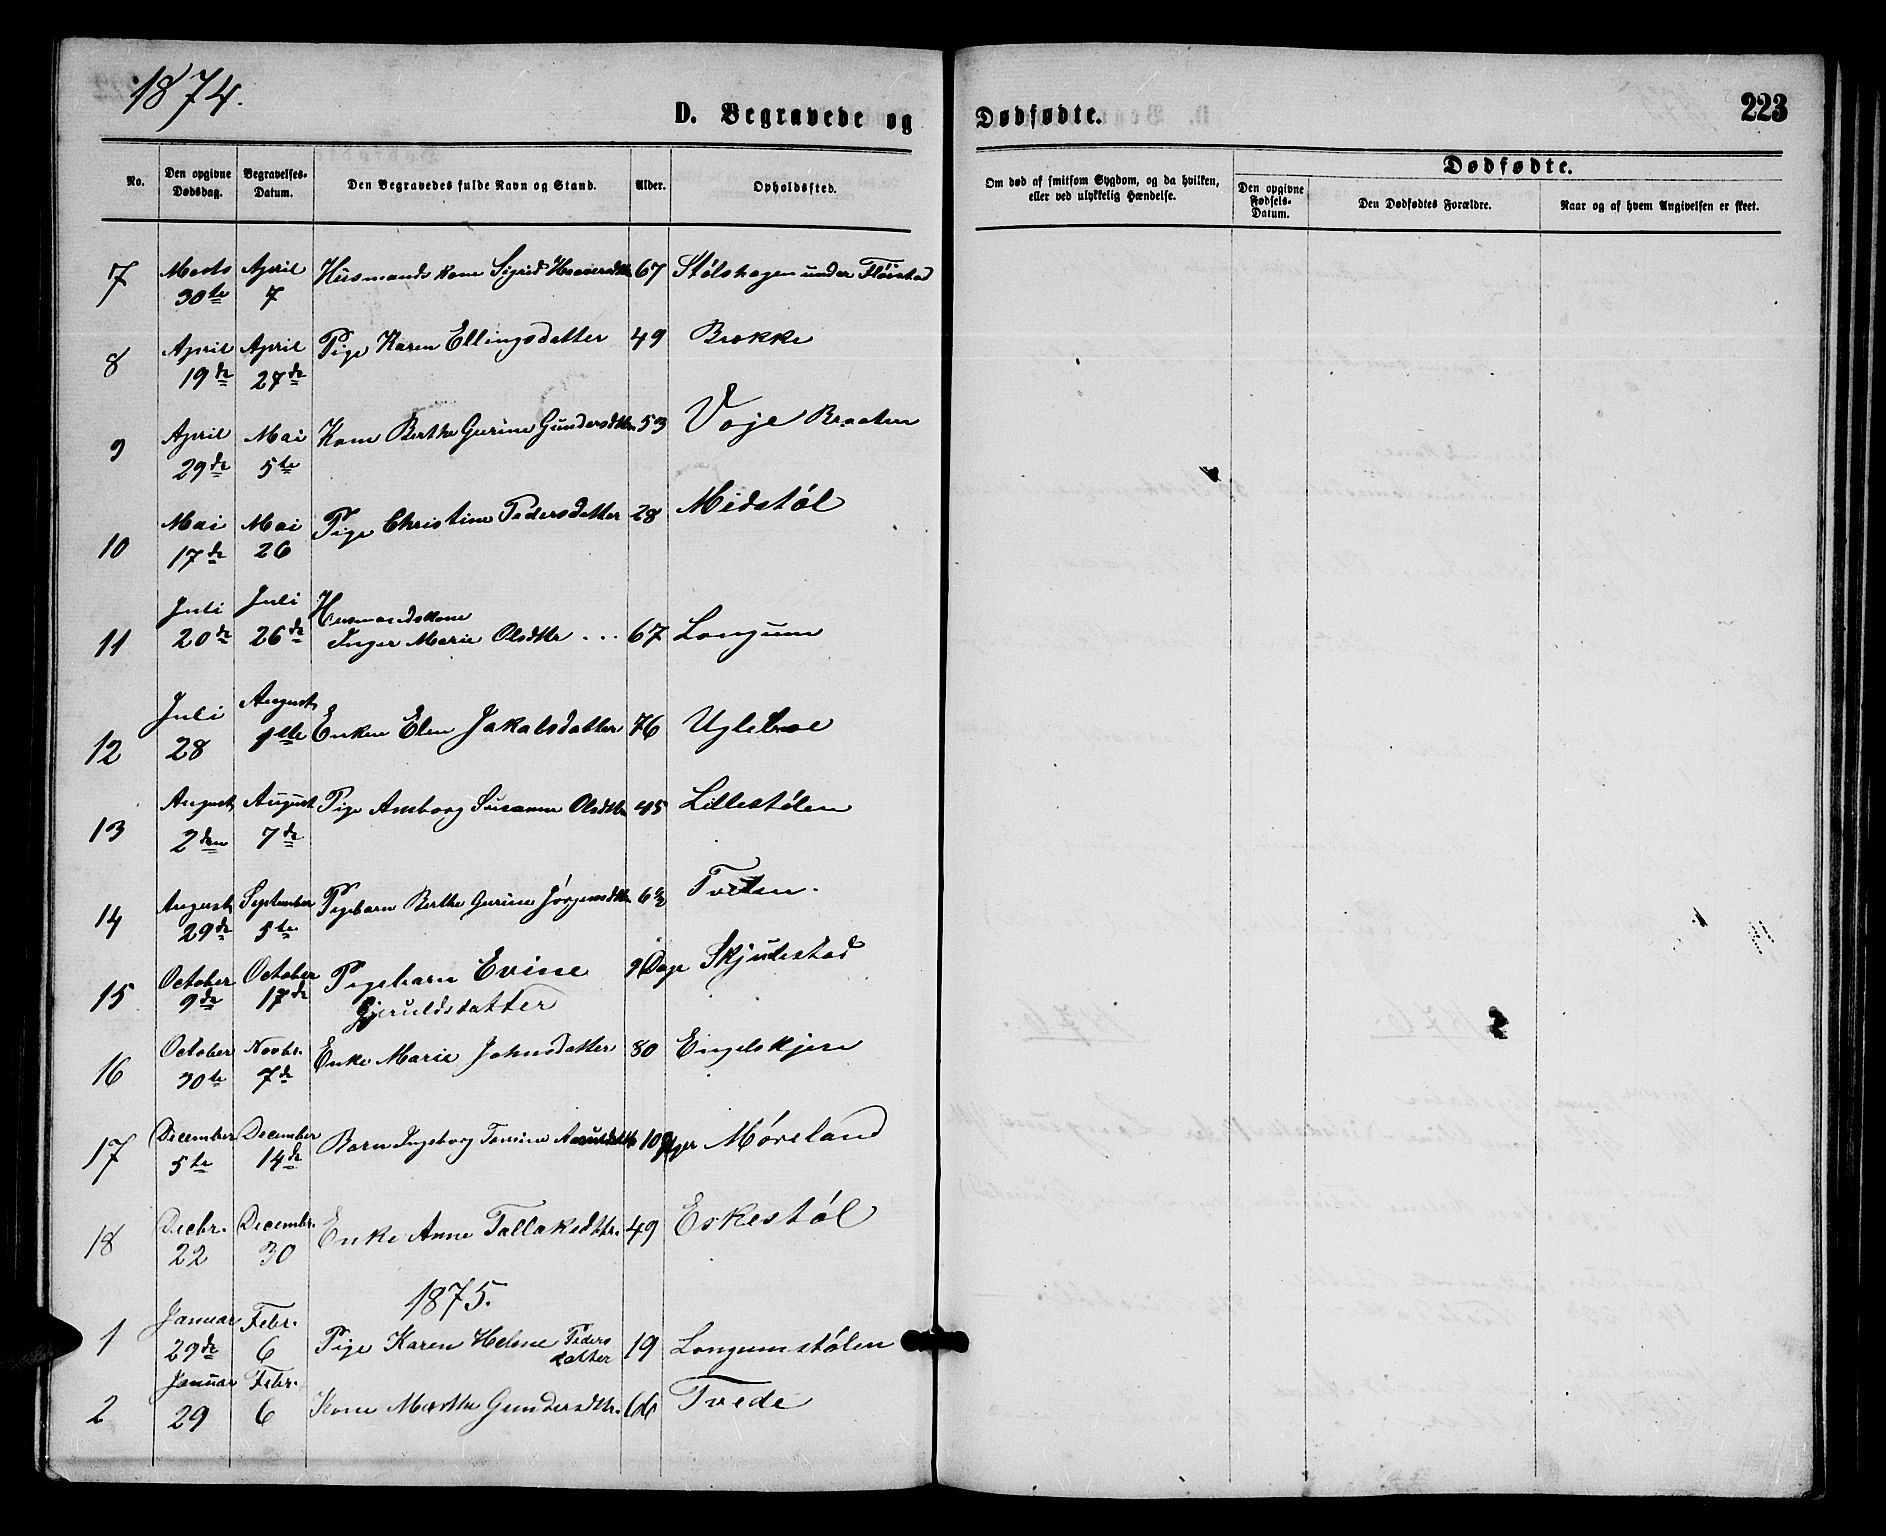 1874.
D. Begravede og Dødfødte.
223
No.
Den opgivne Dødsdag.
Begravelses-Datum.
Den Begravedes fulde Navn og Stand.
Alder.
Opholdssted.
Om død af smitsom Sygdom, og da hvilken, eller ved ulykkelig Hændelse.
Dødfødte.
Den opgivne Fødsels-Datum.
Den Dødfødtes Forældre.
Naar og af hvem Angivelsen er skeet.
7 Marts 30te April 7 Husmands kone Sigrid 67 Stølshagen under Fløistad
8 April 19de April 27de Pige Karen Ellingsdatter 49 Brekke
9 April 29de Mai 5te Kone Berthe Gurine Gundersdttr 53 Voje Braaten
10 Mai 17de Mai 26 Pige Christine Pedersdatter 28 Midstøl
11 Juli 20de Juli 26de Husmandskone Inger Marie Olsdttr ... 67 Longum
12 Juli 28 August 1ste Enken Elen Jakobsdatter 76 Ugleboe
13 August 2den August 7de Pige Amborg Susanne Olsdttr 45 Lillestølen
14 August 29de September 5te Pigebarn Berthe Gurine Jørgensdttr 6 Tveten.
15 October 9de October 17de Pigebarn Evine Gjeruldsdatter 9 Dage Skjulestad
16 October 30te Novbr. 7de Enke Marie Johnsdatter 80 Engelskjøn
17 December 5te December 14de Barn Ingeborg Tomine 10 Møreland
18 Decbr. 22 Decembr. 30 Enke Anne Tallaksdttr. 49 Eskestøl
1875.
1 Januar 29de Febr. 6 Pige Karen Helene Pedersdatter 19 Longumstølen
2 Januar 29 Febr. 6 Kone Marthe Gundersdttr. 66 Tvede